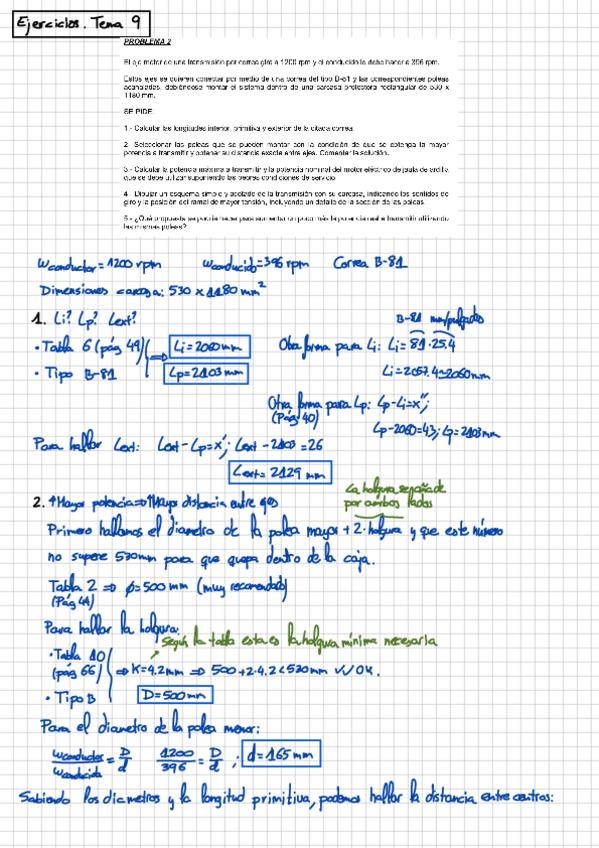 Ejercicios. Tema 9
PROBLEMA 2
El eje motor de una transmisión por correa gira a 1200 rpm y el conducido lo debe hacer a 396 rpm.
Estos ejes se quieren conectar por medio de una correa del tipo B-81 y las correspondientes poleas
acanaladas, debiéndose montar el sistema dentro de una carcasa protectora rectangular de 530 x
1180 mm.
SE PIDE:
1.- Calcular las longitudes interior, primitiva y exterior de la citada correa.
2.- Seleccionar las poleas que se pueden montar con la condición de que se obtenga la mayor
potencia a transmitir y obtener su distancia exacta entre ejes. Comentar la solución.
3.- Calcular la potencia máxima a transmitir y la potencia nominal del motor eléctrico de jaula de ardilla
que se debe utilizar suponiendo las peores condiciones de servicio.
4.- Dibujar un esquema simple y acotado de la transmisión con su carcasa, indicando los sentidos de
giro y la posición del ramal de mayor tensión, incluyendo un detalle de la sección de las poleas.
5.- ¿Qué propuesta se podría hacer para aumentar un poco más la potencia real a transmitir utilizando
las mismas poleas?
Wconductor = 1200 rpm Wconducido = 396 rpm Correa B-81
Dimensiones carcasa: 530 x 1180 mm²
1. Li? Lp? Lext? B-81 mm/pulgadas
• Tabla 6 (pág 49) ⇒ Li = 2060 mm Otra forma para Li: Li = 81·25.4
• Tipo B-81 Lp = 2103 mm Li = 2057.4 ~ 2060 mm
Otra forma para Lp: Lp-Li=x";
(Pág 40) Lp-2060=43; Lp=2103mm
Para hallar Lext: Lext-Lp=x'; Lext-2103=26
Lext = 2129 mm
La holgura sepañade
por ambos lados
2. ↑Mayor potencia⇒↑Mayor distancia entre ejes
Primero hallamos el diametro de la polea mayor + 2·holgura y que este número
no supere 530mm para que quepa dentro de la caja.
Tabla 2 ⇒ φ=500 mm (muy recomendado)
(Pág 44)
Para hallar la holgura:
Según la tabla esta es la holgura mínima necesaria
• Tabla 10
(pág 66) ⇒ K=4.2mm ⇒ 500+2·4.2<530mm √√OK.
• Tipo B D=500mm
Para el diametro de la polea menor:
Wconductor/Wconducida = D/d 1200/396 = D/d ; d=165mm
Sabiendo los diametros y la longitud primitiva, podemos hallar la distancia entre centros: